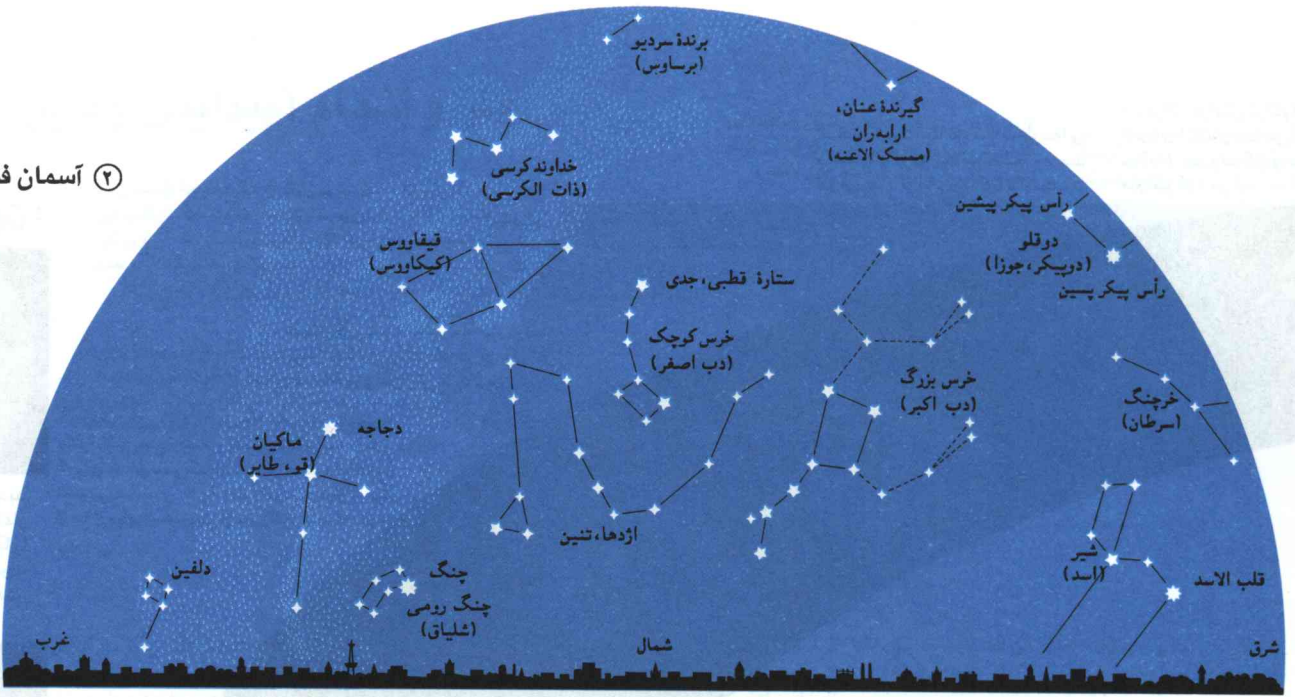 ② آسمان
برندۀ سردیو
(برساوس)
گیرندۀ عنان،
ارابه‌ران
(ممسک الاعنه)
خداوند کرسی
(ذات الکرسی)
رأس پیکر پیشین
دوقلو
(دوپیکر، جوزا)
رأس پیکر پسین
قیقاووس
(کیکاووس)
ستارۀ قطبی، جدی
خرس کوچک
(دب اصغر)
خرس بزرگ
(دب اکبر)
خرچنگ
(سرطان)
دجاجه
ماکیان
(قو، طایر)
اژدها، تنین
شیر
(اسد)
قلب الاسد
دلفین
چنگ
چنگ رومی
(شلیاق)
شرق
شمال
غرب